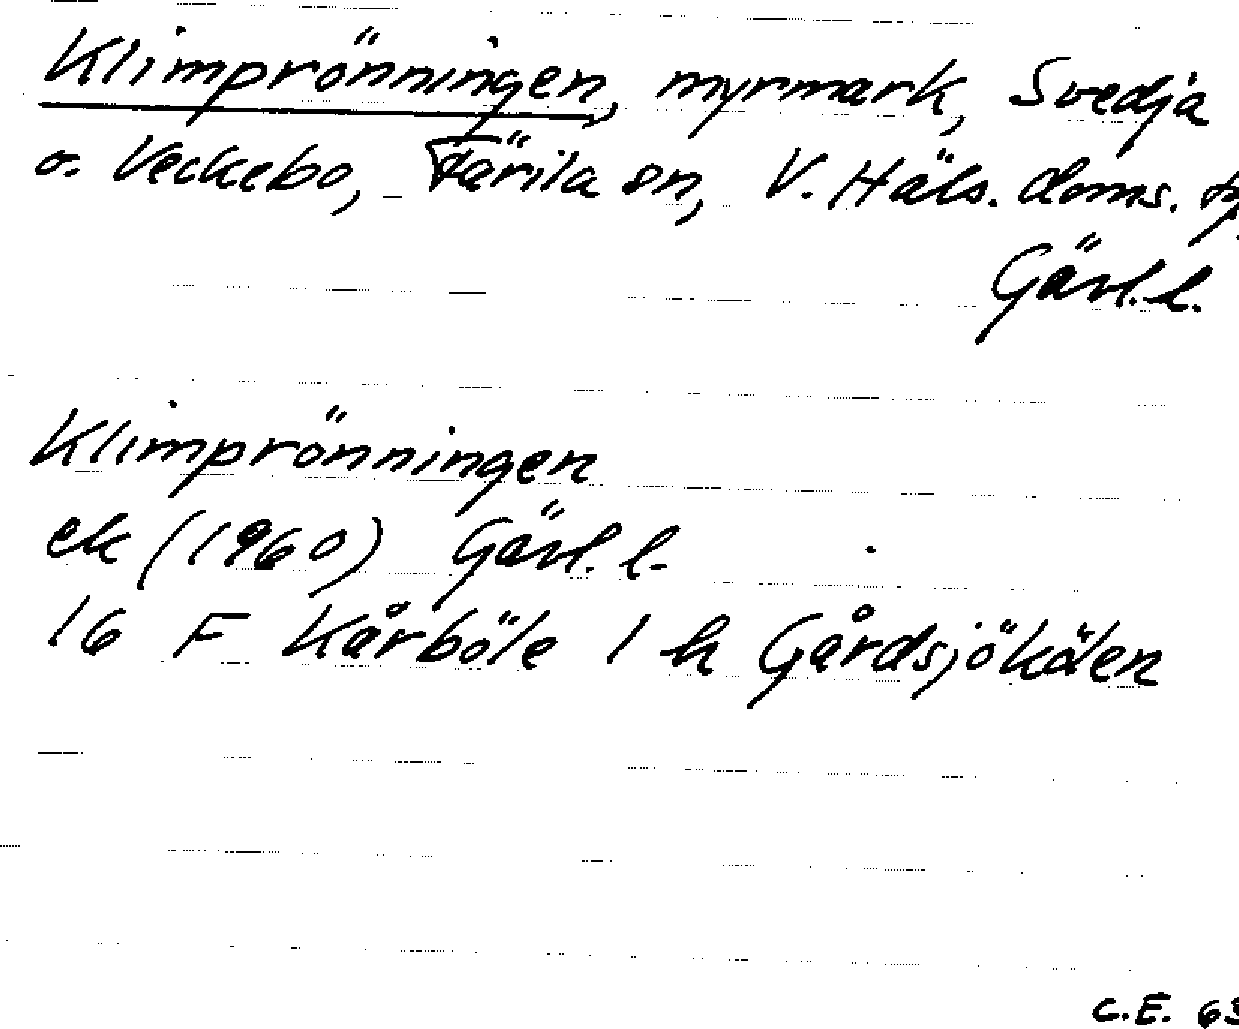 Klimprönningen, myrmark, Svedja
o. Veckebo, Färila sn, V. Häls. doms.
Gävl.l.
Klimprönningen
ek (1960) Gävl.l.
16 F Kårböle 1 h Gårdsjökölen
C.E. 63